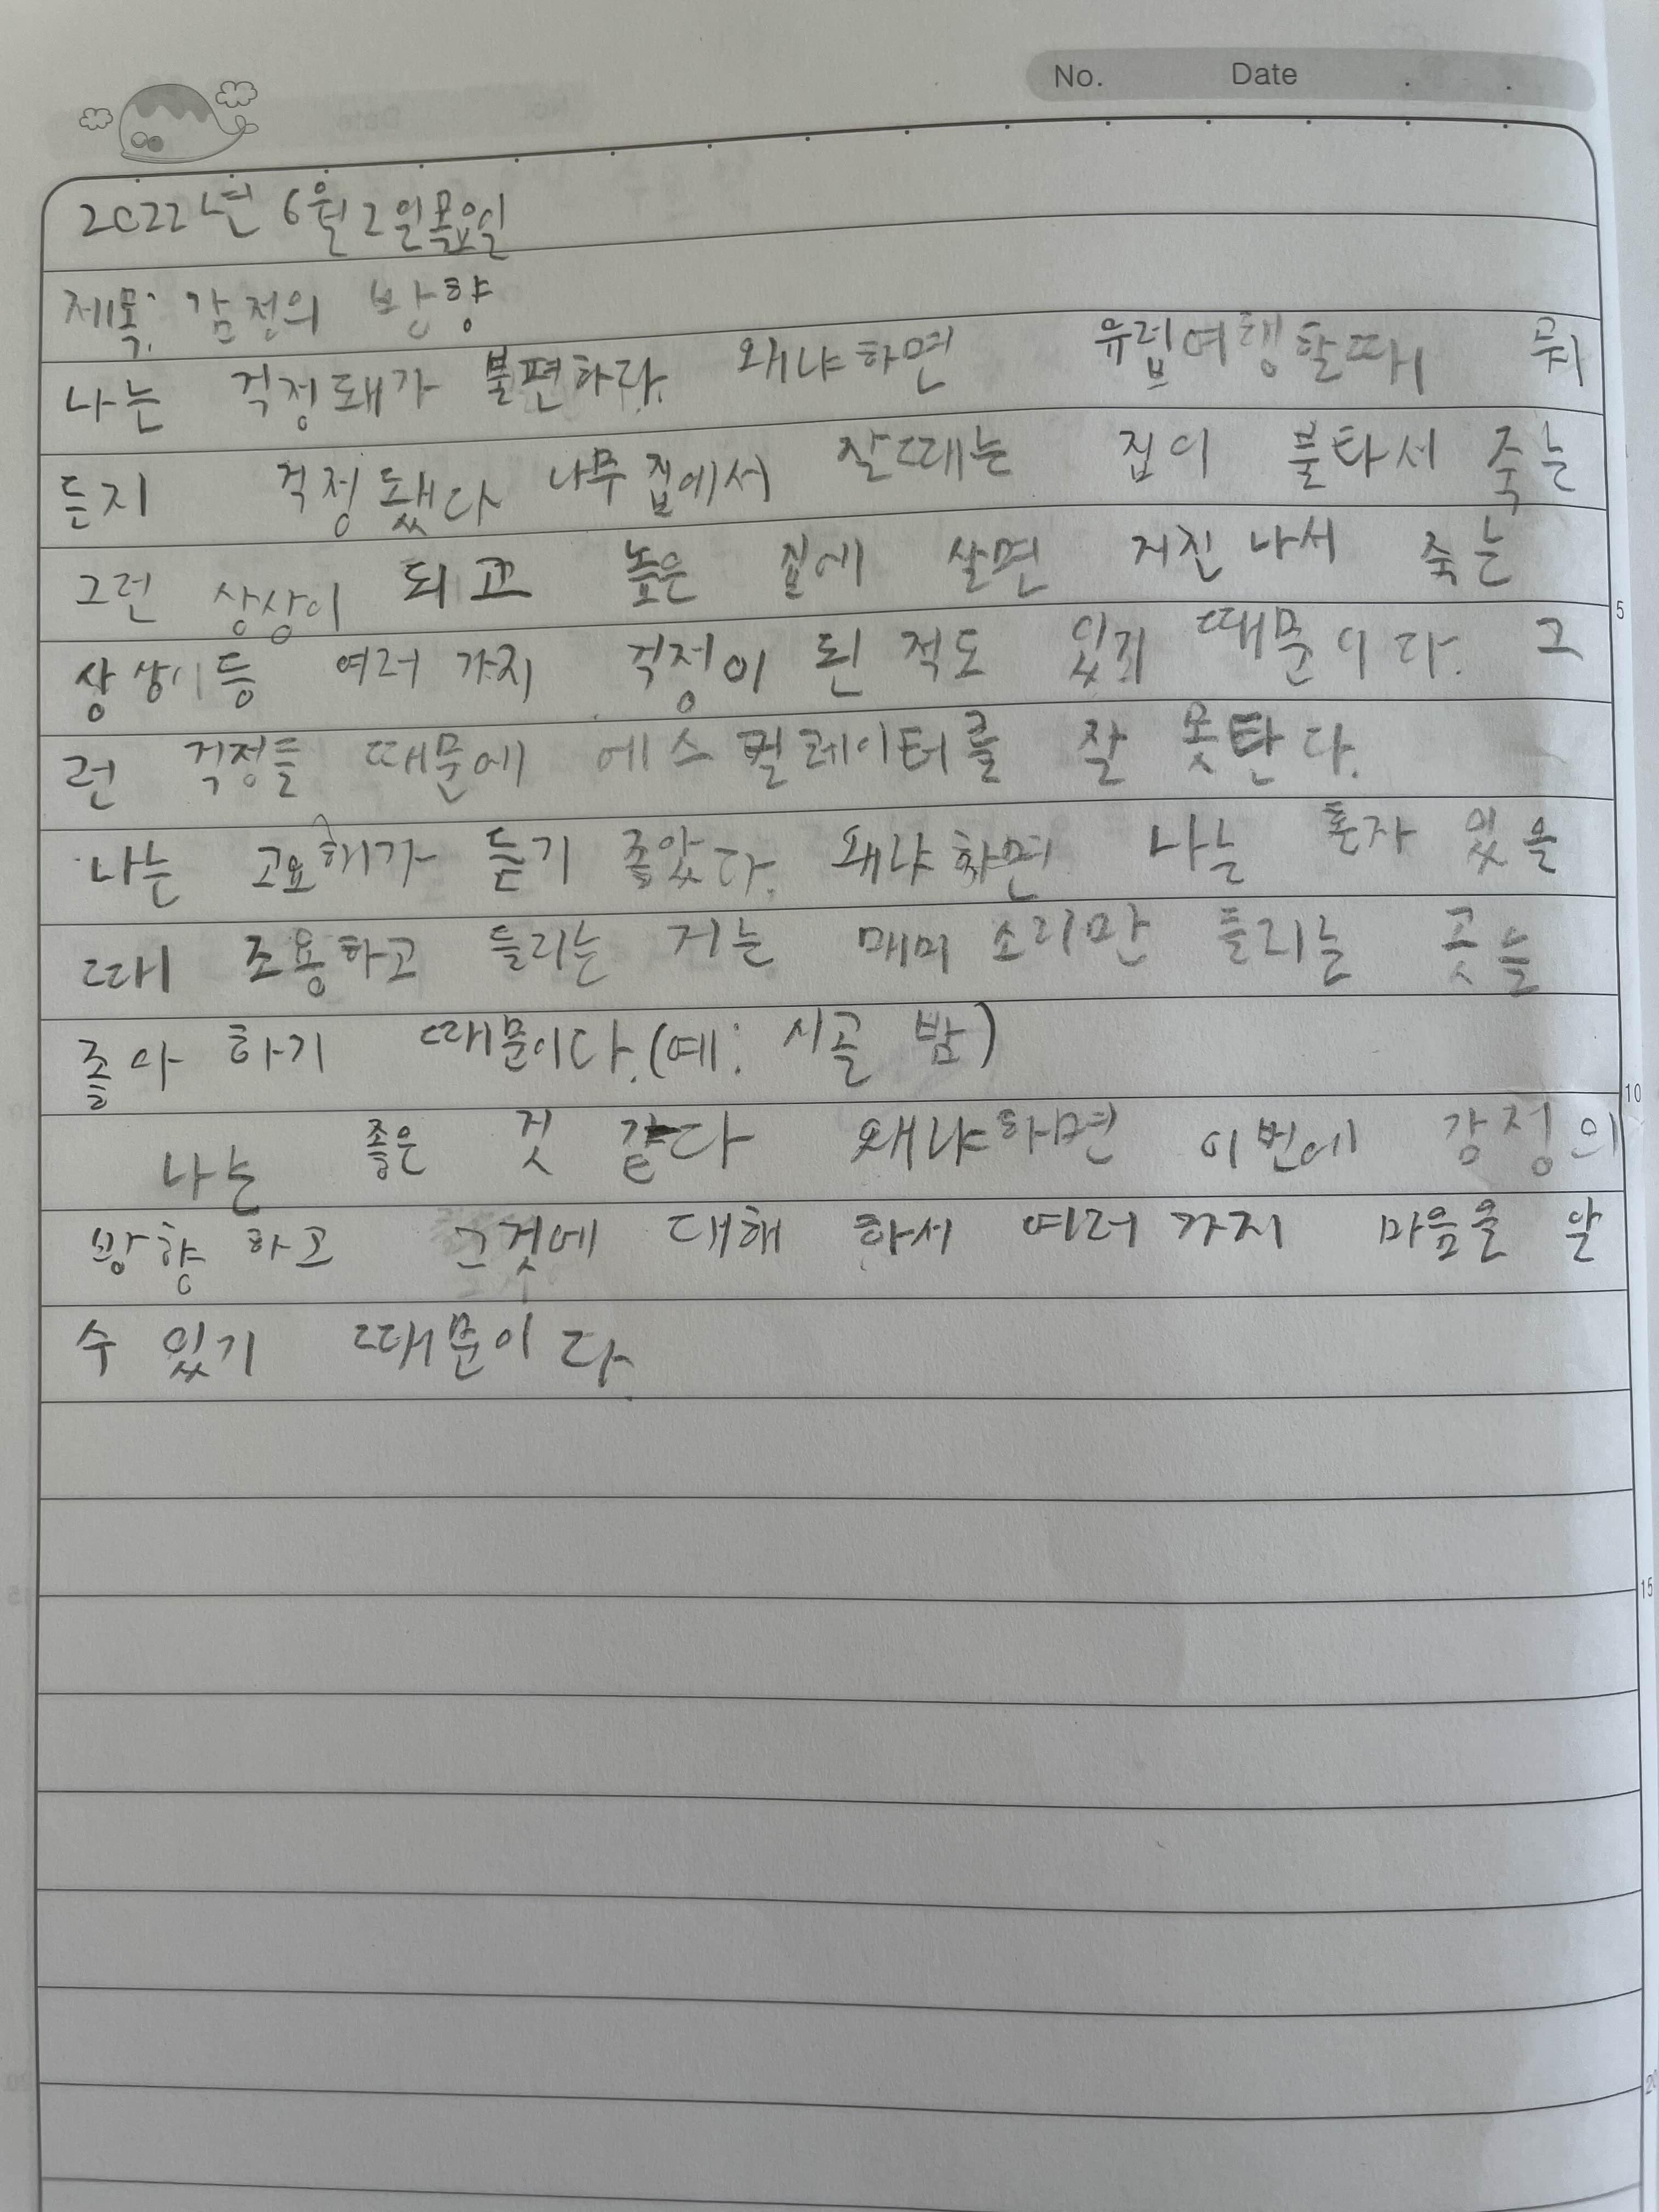 No. Date . .
2022년 6월 2일목요일
제목: 감정의 반향
나는 걱정돼가 불편하다. 왜냐하면 유럽여행할때 뭐
든지 걱정됐다 나무집에서 잘때는 집이 불타서 죽는
그런 상상이 되고 높은 집에 살면 지진 나서 죽는
상상이등 여러 가지 걱정이 된 적도 있기 때문이다. 그
런 걱정들 때문에 에스컬레이터를 잘 못탄다.
나는 고요해가 듣기 좋았다. 왜냐하면 나는 혼자 있을
때 조용하고 들리는 거는 매미 소리만 들리는 곳늘
좋아 하기 때문이다.(예: 시골 밤)
나는 좋은 것 같다 왜냐하면 이번에 감정의
방향 하고 그것에 대해 하서 여러 가지 마음을 알
수 있기 때문이다.
5
10
15